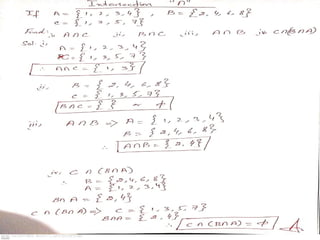 Intersection "∩"
If A = {1, 2, 3, 4} B = {2, 4, 6, 8}
C = {1, 3, 5, 7}
Find: i, A∩C ii, B∩C iii, A∩B iv C∩(B∩A)
Sol: i, A = {1, 2, 3, 4}
C = {1, 3, 5, 7}
∴ A∩C = {1, 3}
ii, B = {2, 4, 6, 8}
C = {1, 3, 5, 7}
B∩C = { } ~ ϕ
iii, A∩B => A = {1, 2, 3, 4}
B = {2, 4, 6, 8}
∴ A∩B = {2, 4}
iv C∩(B∩A)
∴ B = {2, 4, 6, 8}
A = {1, 2, 3, 4}
B∩A = {2, 4}
C∩(B∩A) => C = {1, 3, 5, 7}
B∩A = {2, 4}
∴ C∩(B∩A) = ϕ